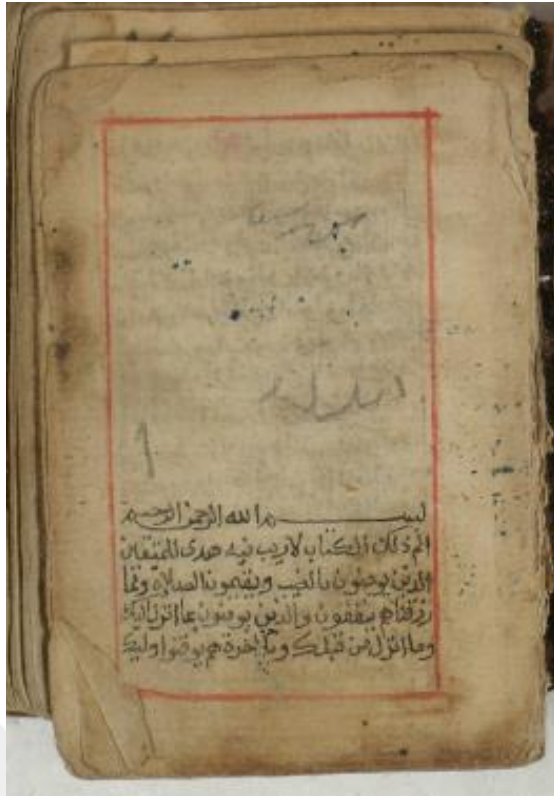 بسم الله الرحمن الرحيم
الم ذلك الكتاب لاريب فيه هدى للمتقين
الذين يومنون بالغيب ويقيمون الصلاة ومما
رزقناهم ينفقون والذين يومنون بما انزل اليك
وما انزل من قبلك وبالاخرة هم يوقنوا وليك